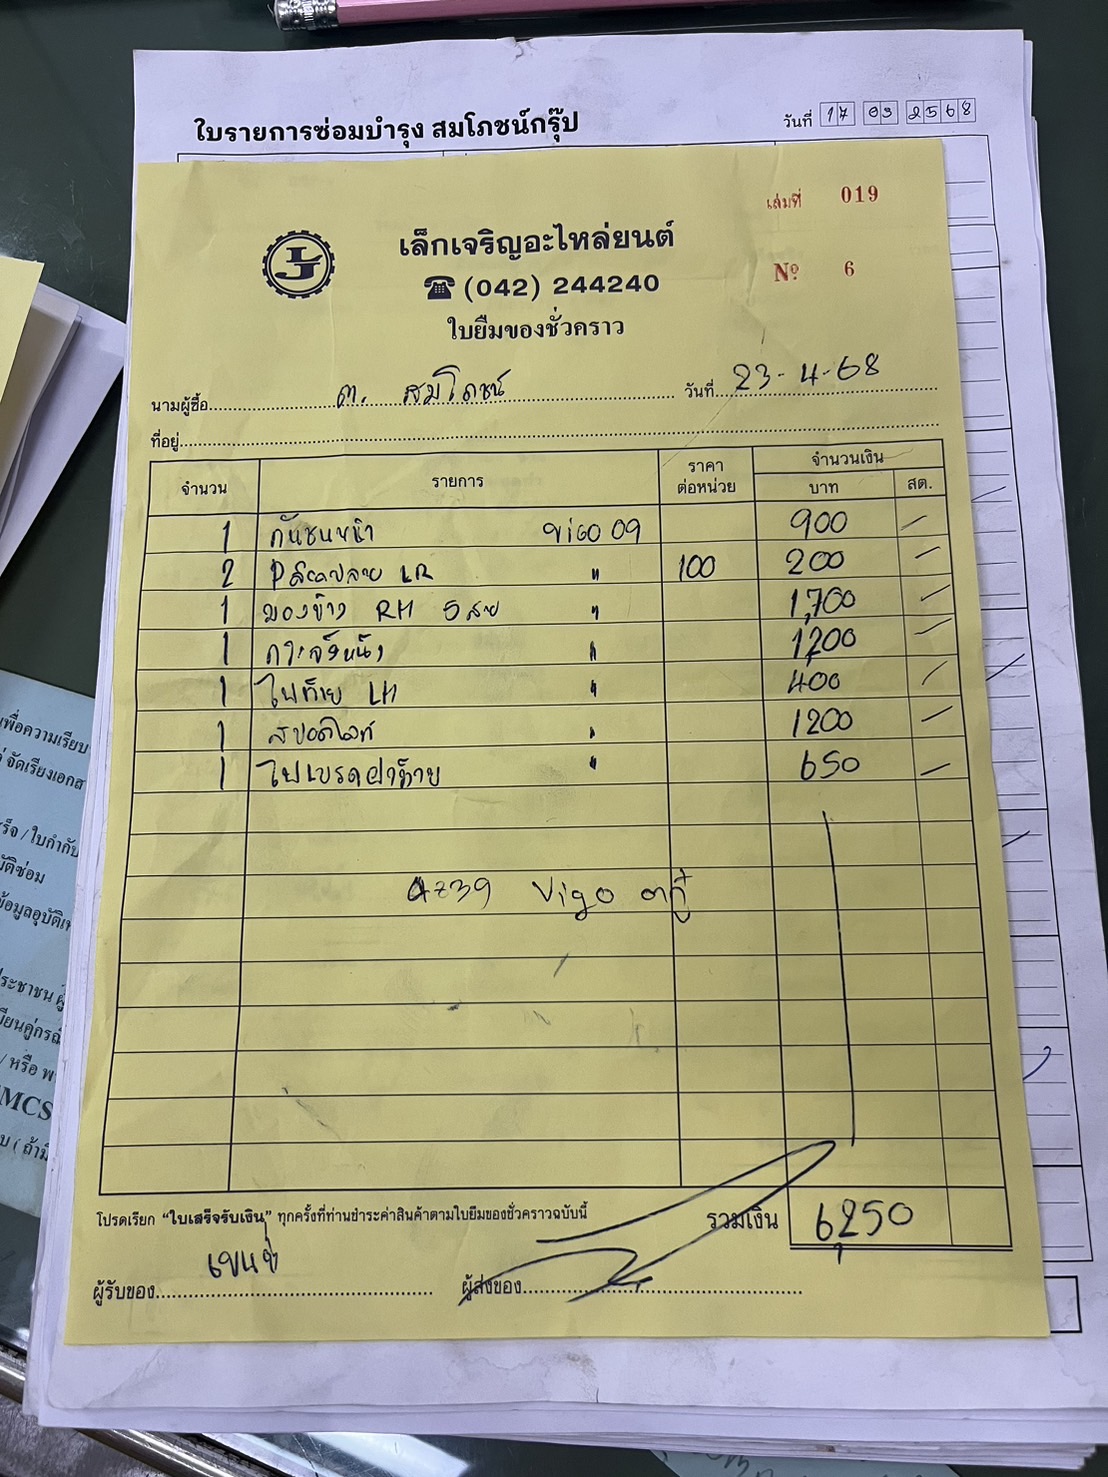 ใบรายการซ่อมบำรุง สมโภชน์กรุ๊ป
วันที่ 17 03 2568
เล่มที่ 019
เล็กเจริญอะไหล่ยนต์
Nº 6
☎ (042) 244240
ใบยืมของชั่วคราว
นามผู้ซื้อ ต. สมโภชน์ วันที่ 23-4-68
ที่อยู่
จำนวน รายการ ราคาต่อหน่วย จำนวนเงิน บาท สต.
1 กันชนหน้า vigo 09 900 -
2 ปลายLR " 100 200 -
1 มองข้าง RH 5 สาย " 1,700 -
1 กระจังหน้า " 1,200 -
1 ไฟท้าย LH " 400 -
1 สปอตไลท์ " 1200 -
1 ไฟเบรคฝาท้าย " 650 -
4239 Vigo ตู้
โปรดเรียก “ใบเสร็จรับเงิน” ทุกครั้งที่ท่านชำระค่าสินค้าตามใบยืมของชั่วคราวฉบับนี้ รวมเงิน 6,250
ผู้รับของ ผู้ส่งของ
เพื่อความเรียบ
จัดเรียงเอกส
/ ใบกำกับ
MCS